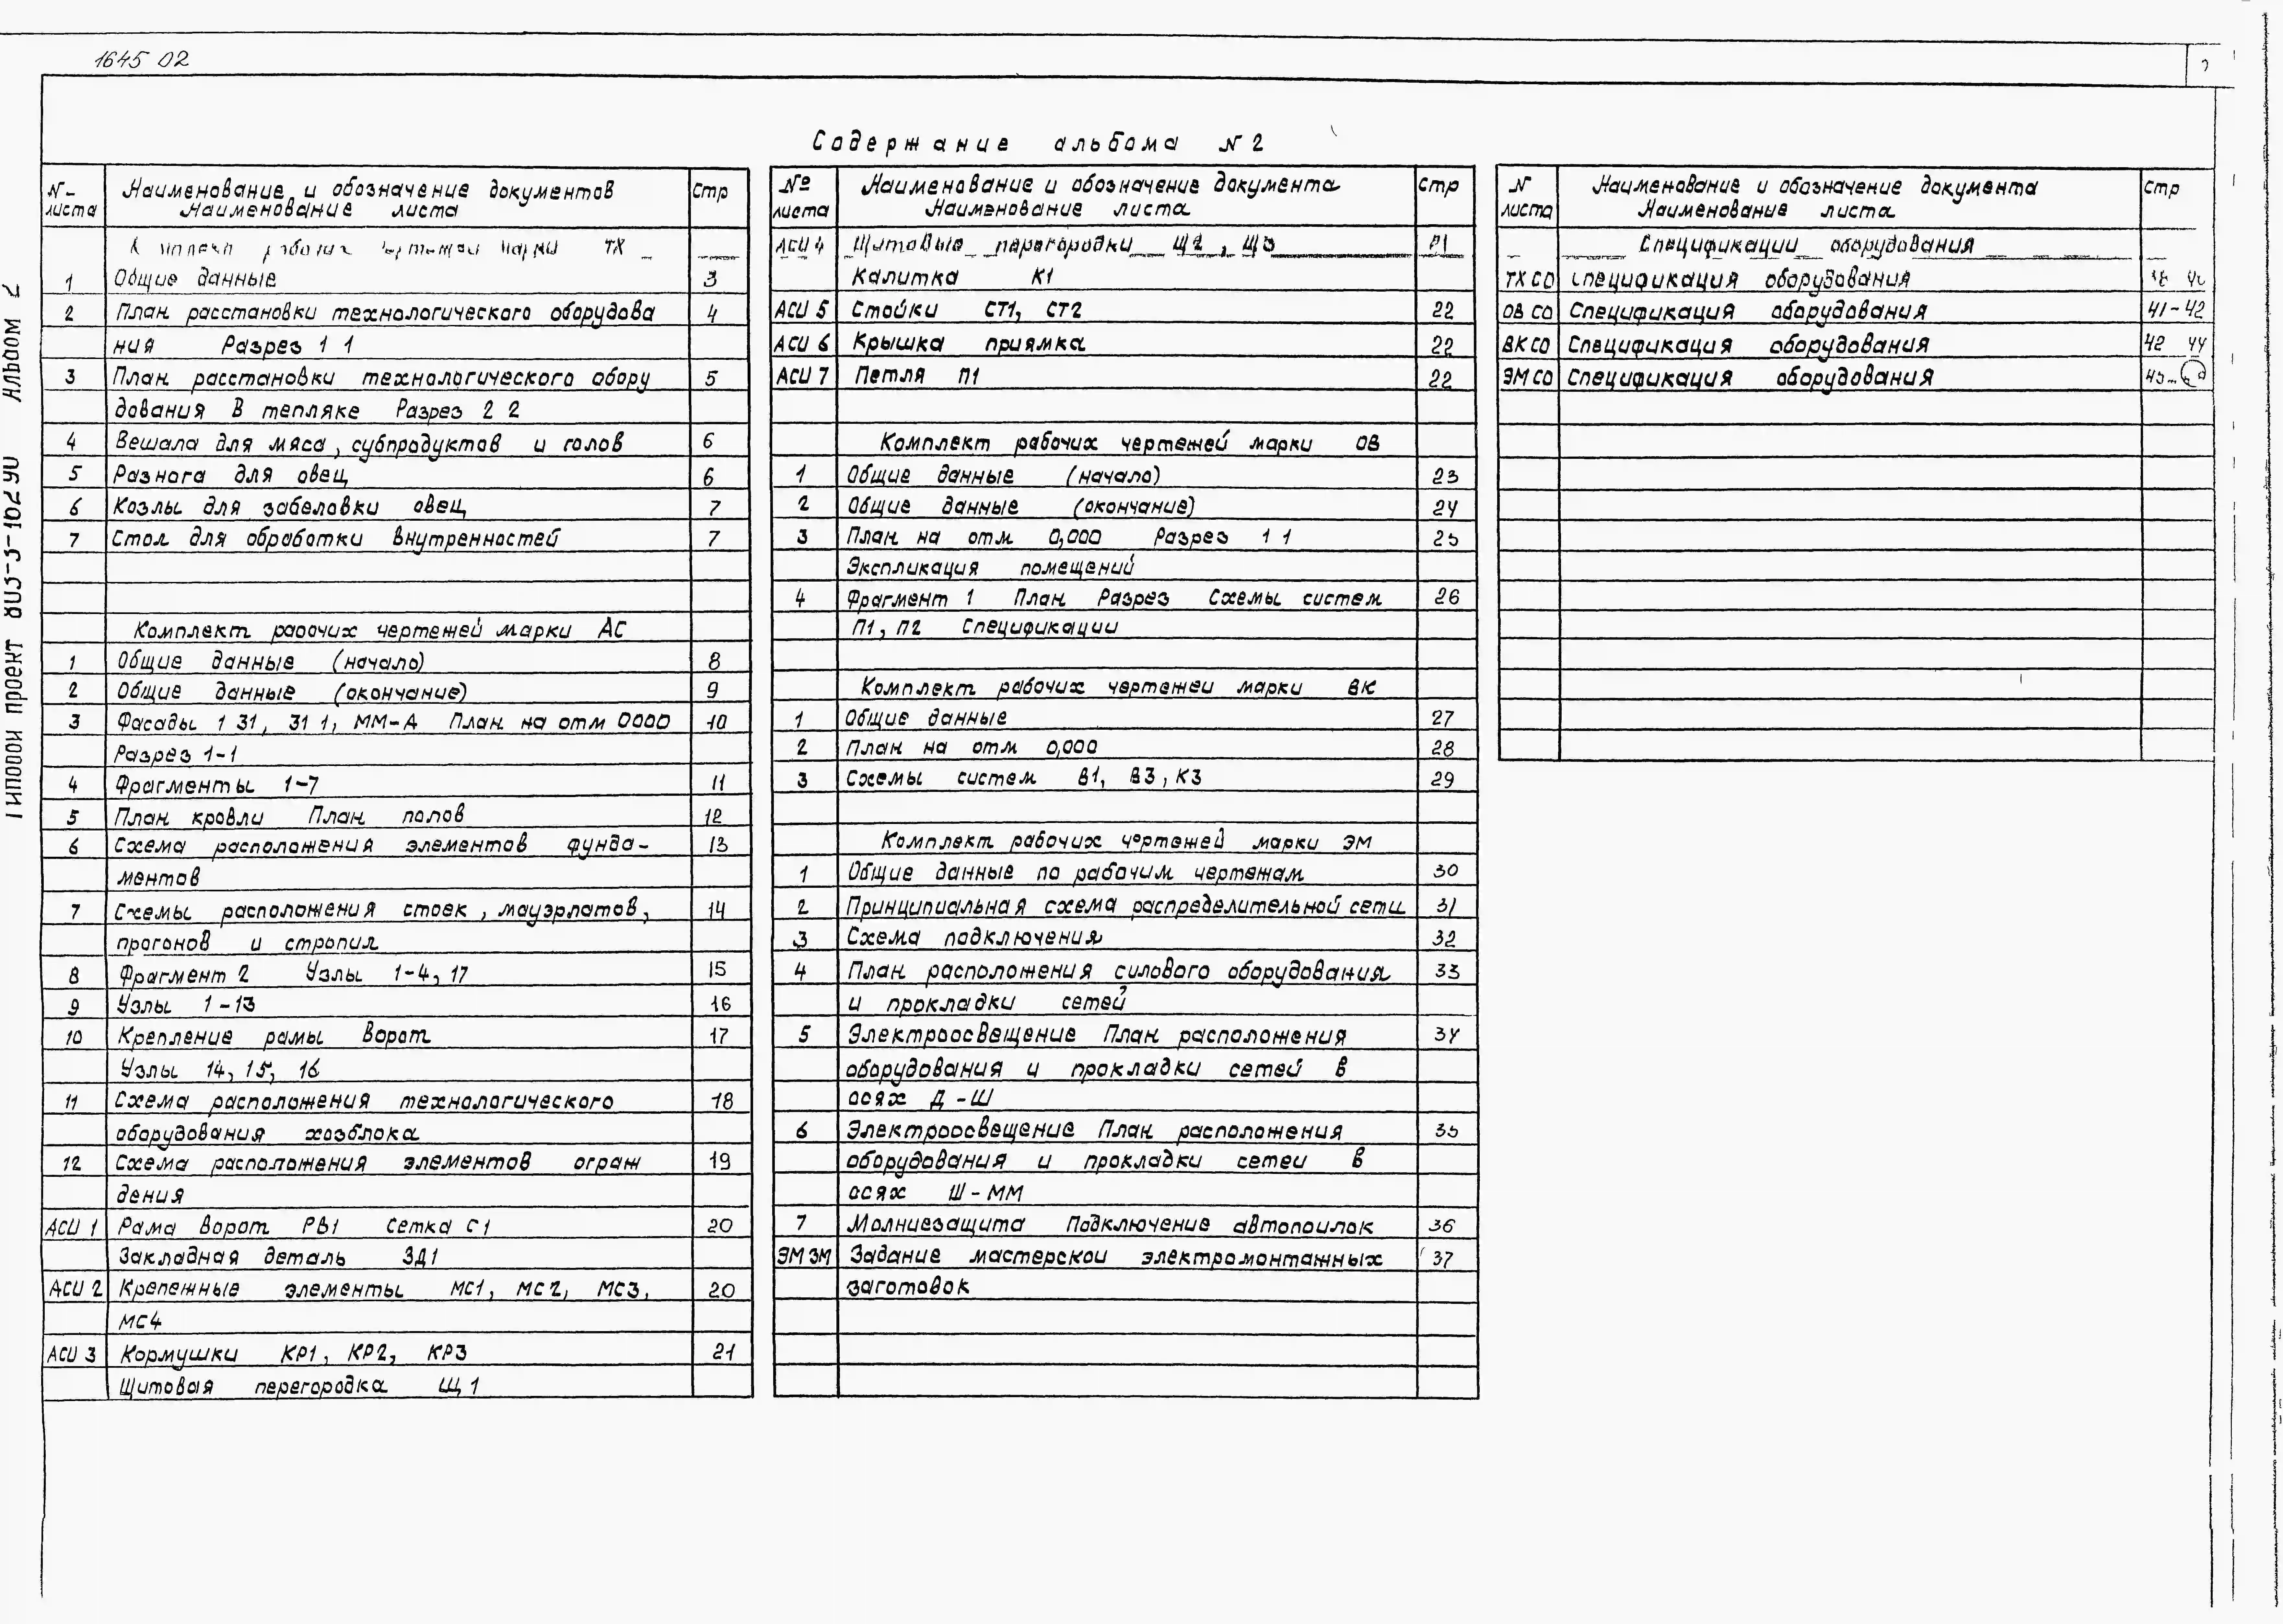 1645 02
Содержание альбома № 2
№ листа
Наименование и обозначение документов
Наименование листа
Стр
марки ТХ
1 Общие данные 3
2 План расстановки технологического оборудова 4
ния Разрез 1 1
3 План расстановки технологического обору 5
дования в тепляке Разрез 2 2
4 Вешала для мяса, субпродуктов и голов 6
5 Разнога для овец 6
6 Козлы для забеловки овец 7
7 Стол для обработки внутренностей 7
Комплект рабочих чертежей марки АС
1 Общие данные (начало) 8
2 Общие данные (окончание) 9
3 Фасады 1 31, 31 1, ММ-А План на отм 0000 10
Разрез 1-1
4 Фрагменты 1-7 11
5 План кровли План полов 12
6 Схема расположения элементов фунда- 13
ментов
7 Схемы расположения стоек, мауэрлатов, 14
прогонов и стропил
8 Фрагмент 2 Узлы 1-4, 17 15
9 Узлы 1-13 16
10 Крепление рамы ворот 17
Узлы 14, 15, 16
11 Схема расположения технологического 18
оборудования хозблока
12 Схема расположения элементов ограж 19
дения
АСИ 1 Рама ворот РВ1 Сетка С1 20
Закладная деталь ЗД1
АСИ 2 Крепежные элементы МС1, МС2, МС3, 20
МС4
АСИ 3 Кормушки КР1, КР2, КР3 21
Щитовая перегородка Щ1
№ листа
Наименование и обозначение документа
Наименование листа
Стр
АСИ 4 Щитовые перегородки Щ2, Щ3 21
Калитка К1
АСИ 5 Стойки СТ1, СТ2 22
АСИ 6 Крышка приямка 22
АСИ 7 Петля П1 22
Комплект рабочих чертежей марки ОВ
1 Общие данные (начало) 23
2 Общие данные (окончание) 24
3 План на отм 0,000 Разрез 1 1 25
Экспликация помещений
4 Фрагмент 1 План Разрез Схемы систем 26
П1, П2 Спецификации
Комплект рабочих чертежей марки ВК
1 Общие данные 27
2 План на отм 0,000 28
3 Схемы систем В1, В3, К3 29
Комплект рабочих чертежей марки ЭМ
1 Общие данные по рабочим чертежам 30
2 Принципиальная схема распределительной сети 31
3 Схема подключения 32
4 План расположения силового оборудования 33
и прокладки сетей
5 Электроосвещение План расположения 34
оборудования и прокладки сетей в
осях Д-Ш
6 Электроосвещение План расположения 35
оборудования и прокладки сетей в
осях Ш-ММ
7 Молниезащита Подключение автопоилок 36
ЭМ ЗМ Задание мастерской электромонтажных 37
заготовок
№ листа
Наименование и обозначение документа
Наименование листа
Стр
Спецификации оборудования
ТХ СО Спецификация оборудования
ОВ СО Спецификация оборудования 41-42
ВК СО Спецификация оборудования 42 44
ЭМ СО Спецификация оборудования
Типовой проект 803-5-102 90 Альбом 2